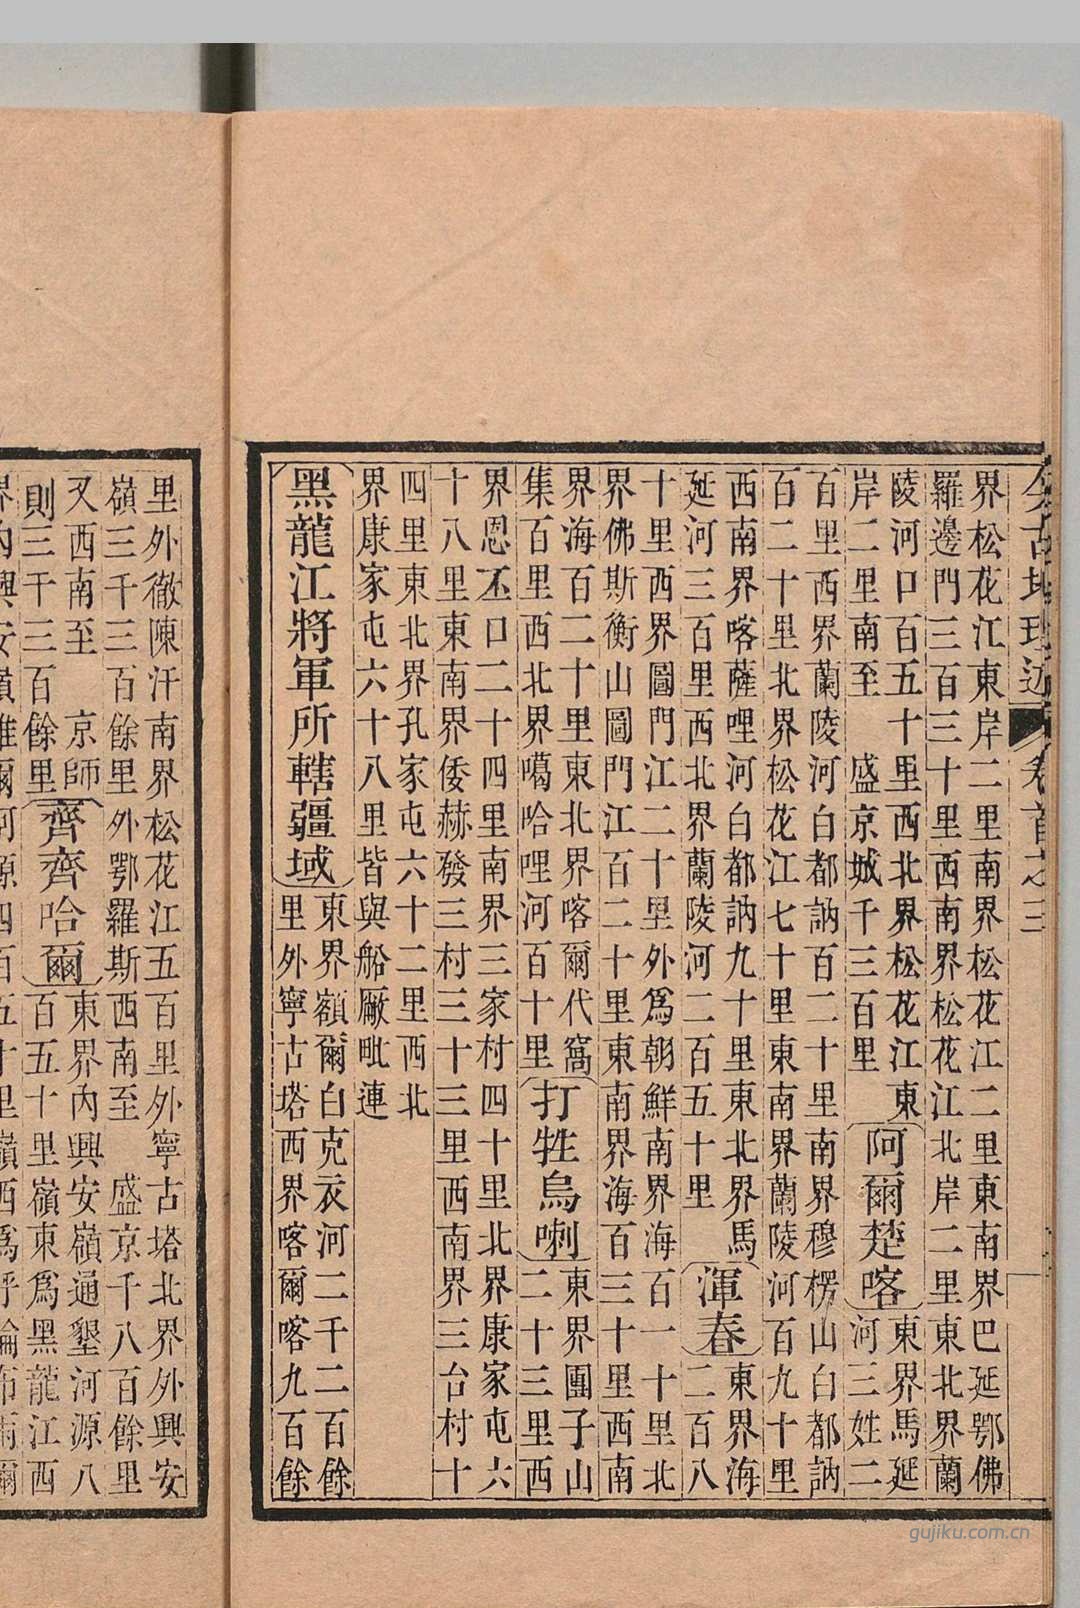 今古地理述 卷首之三
界松花江東岸二里南界松花江二里東南界巴延鄂佛
羅邊門三百三十里西南界松花江北岸二里東北界蘭
陵河口百五十里西北界松花江東
岸二里南至 盛京城千三百里
阿爾楚喀
東界馬延
河三姓二
百里西界蘭陵河白都訥百二十里南界穆楞山白都訥
百二十里北界松花江七十里東南界蘭陵河百九十里
西南界喀薩哩河白都訥九十里東北界馬
延河三百里西北界蘭陵河二百五十里
渾春
東界海
二百八
十里西界圖門江二十里外爲朝鮮南界海百一十里北
界佛斯衡山圖門江百二十里東南界海百三十里西南
界海百二十里東北界喀爾代窩
集百里西北界噶哈哩河百十里
打牲烏喇
東界團子山
二十三里西
界恩丕口二十四里南界三家村四十里北界康家屯六
十八里東南界倭赫發三村三十三里西南界三台村十
四里東北界孔家屯六十二里西北
界康家屯六十八里皆與船廠毗連
黑龍江將軍所轄疆域
東界額爾白克衣河二千二百餘
里外寧古塔西界喀爾喀九百餘
里外徹陳汗南界松花江五百里外寧古塔北界外興安
嶺三千三百餘里外鄂羅斯西南至 盛京千八百餘里
又西南至 京師
則三千三百餘里
齊齊哈爾
東界內興安嶺通墾河源八
百五十里嶺東爲黑龍江西
gujiku.com.cn